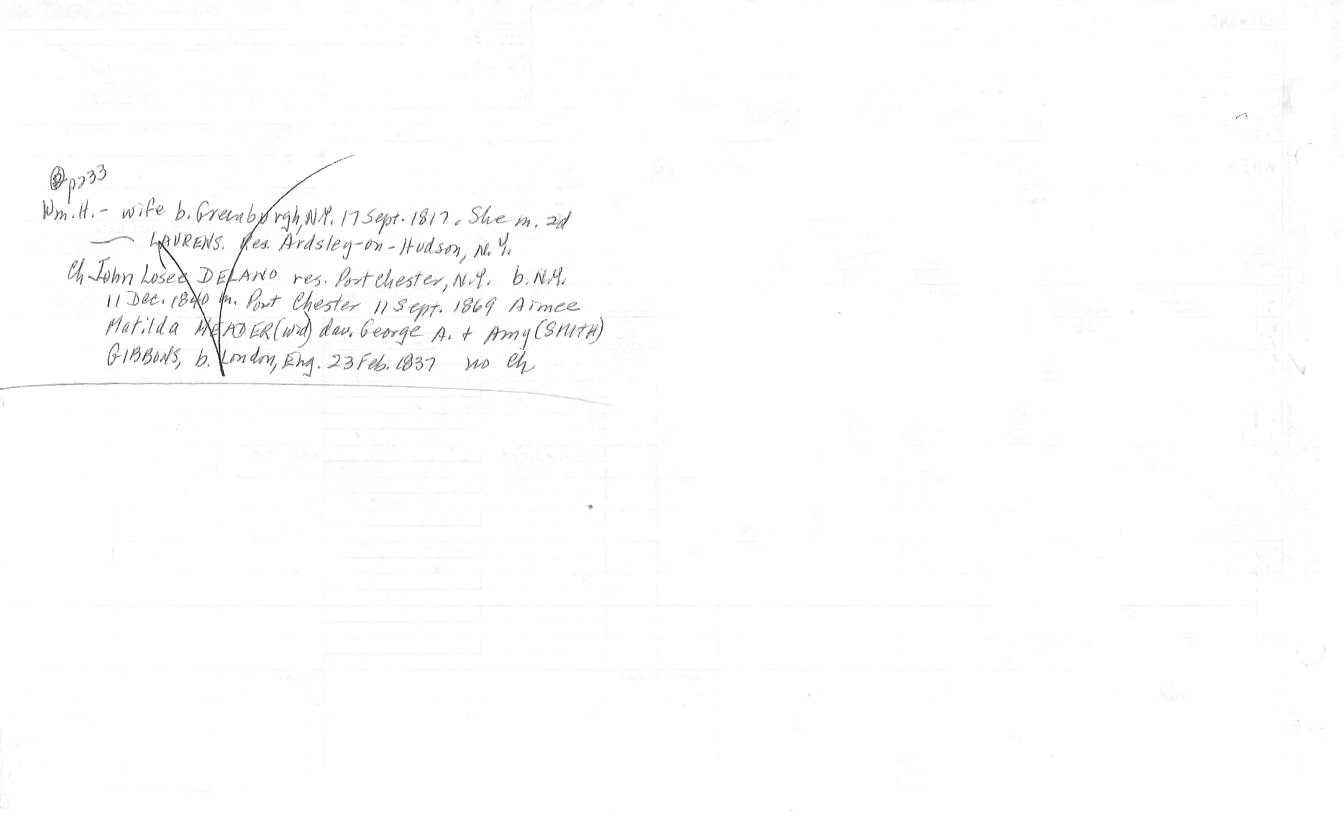 p233
Wm. H. - wife b. Greenburgh, N.Y. 17 Sept. 1817. She m. 2d
—— LAURENS. Res. Ardsley-on-Hudson, N.Y.
Ch John Losee DELANO res. Port Chester, N.Y. b. N.Y.
11 Dec. 1840 m. Port Chester 11 Sept. 1869 Aimee
Matilda MEADER (wid) dau. George A. + Amy (SMITH)
GIBBONS, b. London, Eng. 23 Feb. 1837 no Ch